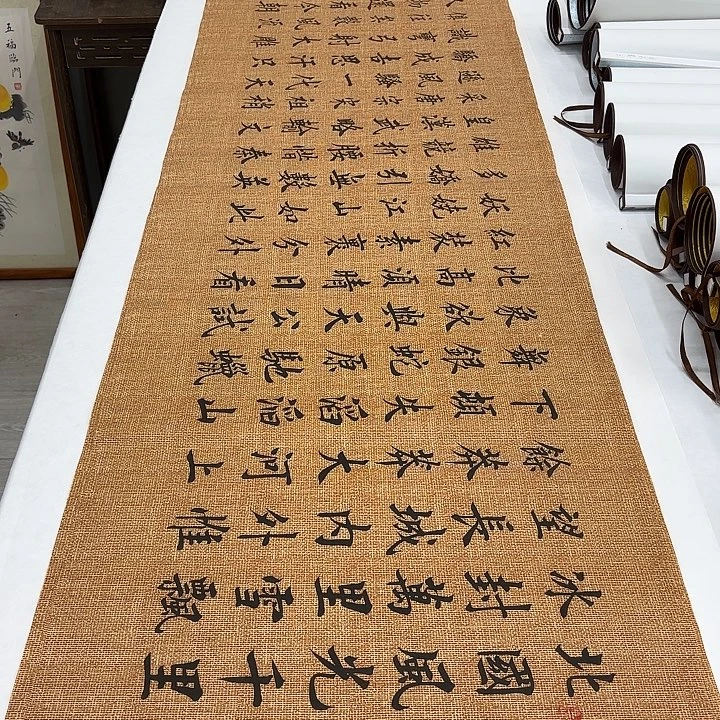 北國風光千里
冰封萬里雪飄
望長城內外惟
餘莽莽大河上
下頓失滔滔山
舞銀蛇原馳蠟
象欲與天公試
比高須晴日看
紅裝素裹分外
妖嬈江山如此
多嬌引無數英
雄競折腰惜秦
皇漢武略輸文
采唐宗宋祖稍
遜風騷一代天
驕成吉思汗只
識彎弓射大雕
五福臨門